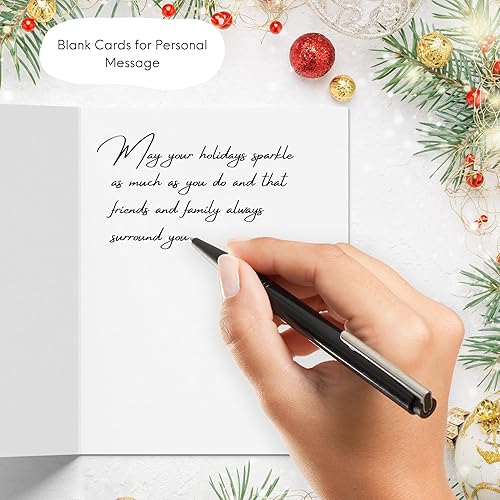 Blank Cards for Personal
Message
May your holidays sparkle
as much as you do and that
friends and family always
surround you